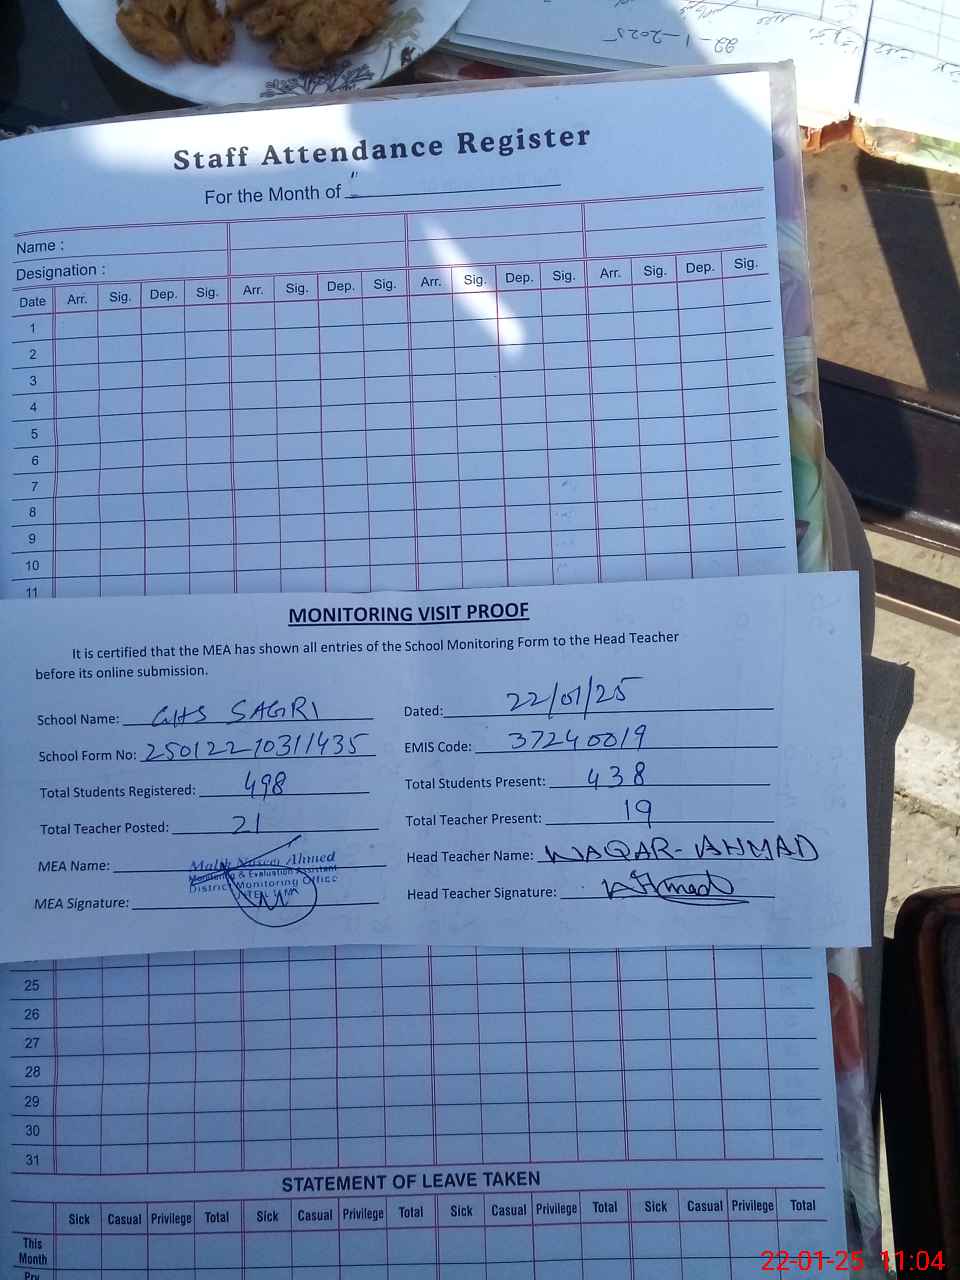 22-1-2025
Staff Attendance Register
For the Month of "
Name :
Designation :
Date Arr. Sig. Dep. Sig. Arr. Sig. Dep. Sig. Arr. Sig. Dep. Sig. Arr. Sig. Dep. Sig.
1
2
3
4
5
6
7
8
9
10
11
MONITORING VISIT PROOF
It is certified that the MEA has shown all entries of the School Monitoring Form to the Head Teacher
before its online submission.
School Name: GHS SAGRI Dated: 22/01/25
School Form No: 25012210311435 EMIS Code: 37240019
Total Students Registered: 498 Total Students Present: 438
Total Teacher Posted: 21 Total Teacher Present: 19
MEA Name: Malik Naeem Ahmed Head Teacher Name: WAQAR-AHMAD
Monitoring & Evaluation Assistant
District Monitoring Office
MEA Signature: Head Teacher Signature: Ahmad
25
26
27
28
29
30
31
STATEMENT OF LEAVE TAKEN
Sick Casual Privilege Total Sick Casual Privilege Total Sick Casual Privilege Total Sick Casual Privilege Total
This
Month
Prv
22-01-25 11:04